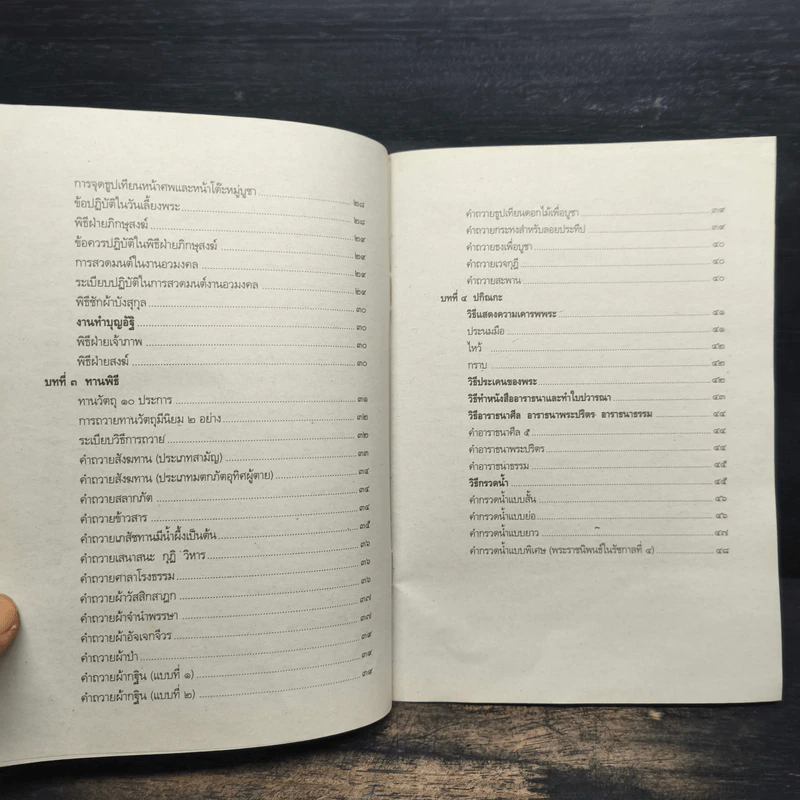 การจุดธูปเทียนหน้าศพและหน้าโต๊ะหมู่บูชา ๒๘
ข้อปฏิบัติในวันเลี้ยงพระ ๒๘
พิธีฝ่ายภิกษุสงฆ์ ๒๙
ข้อควรปฏิบัติในพิธีฝ่ายภิกษุสงฆ์ ๒๙
การสวดมนต์ในงานอวมงคล ๒๙
ระเบียบปฏิบัติในการสวดมนต์งานอวมงคล ๒๙
พิธีชักผ้าบังสุกุล ๓๐
งานทำบุญอัฐิ ๓๐
พิธีฝ่ายเจ้าภาพ ๓๐
พิธีฝ่ายสงฆ์ ๓๐
บทที่ ๓ ทานพิธี
ทานวัตถุ ๑๐ ประการ ๓๑
การถวายทานวัตถุมีนิยม ๒ อย่าง ๓๒
ระเบียบวิธีการถวาย ๓๒
คำถวายสังฆทาน (ประเภทสามัญ) ๓๓
คำถวายสังฆทาน (ประเภทมตกภัตอุทิศผู้ตาย) ๓๔
คำถวายสลากภัต ๓๔
คำถวายข้าวสาร ๓๔
คำถวายเภสัชทานมีน้ำผึ้งเป็นต้น ๓๕
คำถวายเสนาสนะ กุฏิ วิหาร ๓๖
คำถวายศาลาโรงธรรม ๓๖
คำถวายผ้าวัสสิกสาฎก ๓๖
คำถวายผ้าจำนำพรรษา ๓๗
คำถวายผ้าอัจเจกจีวร ๓๗
คำถวายผ้าป่า
คำถวายผ้ากฐิน (แบบที่ ๑)
คำถวายผ้ากฐิน (แบบที่ ๒)
คำถวายธูปเทียนดอกไม้เพื่อบูชา ๓๙
คำถวายกระทงสำหรับลอยประทีป ๓๙
คำถวายธงเพื่อบูชา ๔๐
คำถวายเวจกุฎี ๔๐
คำถวายสะพาน ๔๐
บทที่ ๔ ปกิณกะ
วิธีแสดงความเคารพพระ ๔๑
ประนมมือ ๔๑
ไหว้ ๔๒
กราบ ๔๒
วิธีประเคนของพระ ๔๒
วิธีทำหนังสืออาราธนาและทำใบปวารณา ๔๓
วิธีอาราธนาศีล อาราธนาพระปริตร อาราธนาธรรม ๔๔
คำอาราธนาศีล ๕ ๔๔
คำอาราธนาพระปริตร ๔๔
คำอาราธนาธรรม ๔๕
วิธีกรวดน้ำ ๔๕
คำกรวดน้ำแบบสั้น ๔๖
คำกรวดน้ำแบบย่อ ๔๖
คำกรวดน้ำแบบยาว ๔๗
คำกรวดน้ำแบบพิเศษ (พระราชนิพนธ์ในรัชกาลที่ ๔) ๔๘